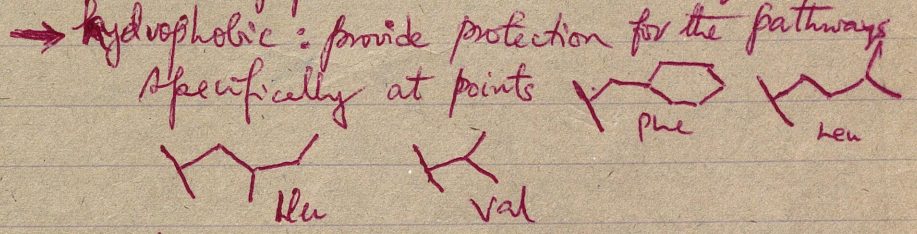 → hydrophobic : provide protection for the pathways
specifically at points
Phe Leu
Ileu Val